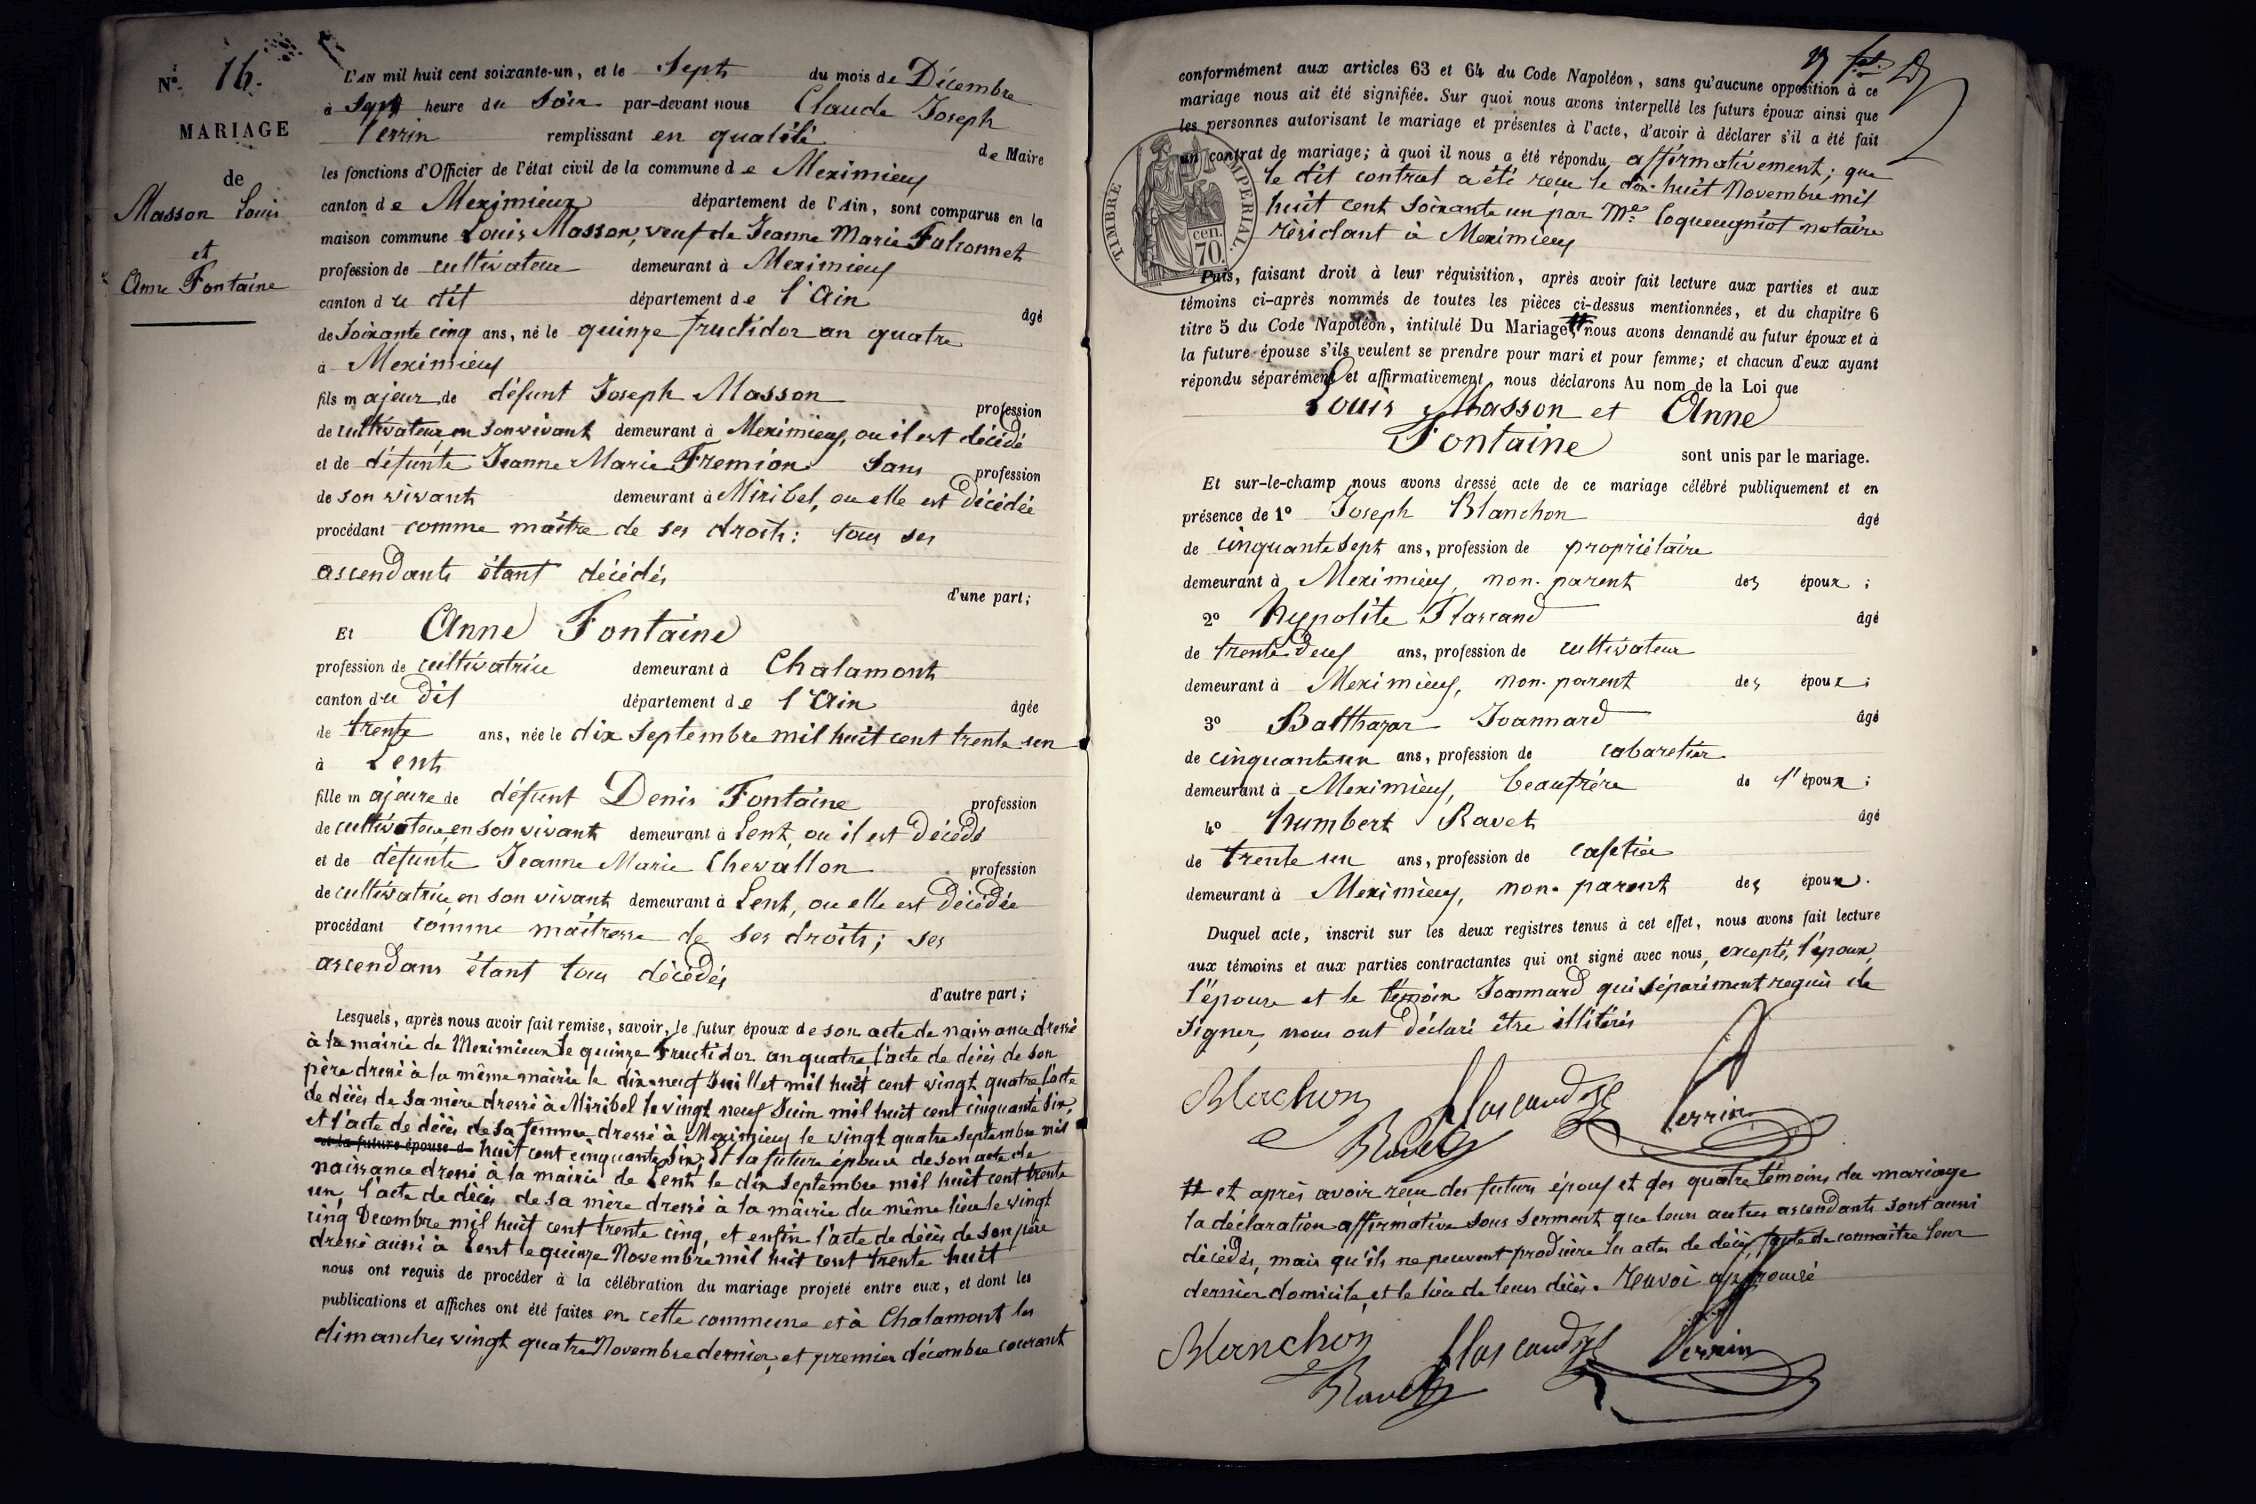 N.° 16.
MARIAGE
de
Masson Louis
et
Anne Fontaine
L'AN mil huit cent soixante-un, et le Sept du mois de Décembre
à Sept heure du Soir par-devant nous Claude Joseph
Perrin remplissant en qualité de Maire
les fonctions d'Officier de l'état civil de la commune de Meximieux
canton de Meximieux département de l'Ain, sont comparus en la
maison commune Louis Masson, veuf de Jeanne Marie Falconnet
profession de cultivateur demeurant à Meximieux
canton du dit département de l'Ain âgé
de Soixante cinq ans, né le quinze fructidor an quatre
à Meximieux
fils majeur de défunt Joseph Masson profession
de cultivateur en son vivant demeurant à Meximieux, ou il est décédé
et de défunte Jeanne Marie Fremion Sans profession
de son vivant demeurant à Miribel, ou elle est décédée
procédant comme maître de ses droits: tous ses
ascendants étant décédés
d'une part;
Et Anne Fontaine
profession de cultivatrice demeurant à Chalamont
canton du dit département de l'Ain âgée
de trente ans, née le dix Septembre mil huit cent trente un
à Lent
fille majeure de défunt Denis Fontaine profession
de cultivateur, en son vivant demeurant à Lent, ou il est décédé
et de défunte Jeanne Marie Chevallon profession
de cultivatrice, en son vivant demeurant à Lent, ou elle est décédée
procédant comme maitresse de ses droits; ses
ascendans étant tous décédés
d'autre part;
Lesquels, après nous avoir fait remise, savoir, le futur époux de son acte de naissance dressé
à la mairie de Meximieux le quinze Fructidor an quatre, l'acte de décès de son
père dressé à la même mairie le dix-neuf Juillet mil huit cent vingt quatre, l'acte
de décès de sa mère dressé à Miribel le vingt neuf Juin mil huit cent cinquante six,
et l'acte de décès de sa femme dressé à Meximieux le vingt quatre Septembre mil
et la future épouse d huit cent cinquante six; et la future épouse de son acte de
naissance dressé à la mairie de Lent le dix Septembre mil huit cent trente
un, l'acte de décès de sa mère dressé à la mairie du même lieu le vingt
cinq Decembre mil huit cent trente cinq, et enfin l'acte de décès de son père
dressé aussi à Lent le quinze Novembre mil huit cent trente huit
nous ont requis de procéder à la célébration du mariage projeté entre eux, et dont les
publications et affiches ont été faites en cette commune et à Chalamont les
dimanches vingt quatre Novembre dernier, et premier décembre courant
conformément aux articles 63 et 64 du Code Napoléon, sans qu'aucune opposition à ce
mariage nous ait été signifiée. Sur quoi nous avons interpellé les futurs époux ainsi que
les personnes autorisant le mariage et présentes à l'acte, d'avoir à déclarer s'il a été fait
un contrat de mariage; à quoi il nous a été répondu affirmativement; que
le dit contrat a été reçu le dix-huit Novembre mil
huit cent soixante un par Me Coqueugniot notaire
résidant à Meximieux
TIMBRE IMPERIAL.
cen.
70.
Puis, faisant droit à leur réquisition, après avoir fait lecture aux parties et aux
témoins ci-après nommés de toutes les pièces ci-dessus mentionnées, et du chapitre 6
titre 5 du Code Napoléon, intitulé Du Mariage, # nous avons demandé au futur époux et à
la future épouse s'ils veulent se prendre pour mari et pour femme; et chacun d'eux ayant
répondu séparément et affirmativement nous déclarons Au nom de la Loi que
Louis Masson et Anne
Fontaine sont unis par le mariage.
Et sur-le-champ nous avons dressé acte de ce mariage célébré publiquement et en
présence de 1° Joseph Blanchon âgé
de cinquante sept ans, profession de propriétaire
demeurant à Meximieux, non-parent des époux;
2° Hypolite Flascand âgé
de trente deux ans, profession de cultivateur
demeurant à Meximieux, non-parent des époux;
3° Balthazar Joannard âgé
de cinquante un ans, profession de cabaretier
demeurant à Meximieux, beaufrère de l'époux;
4° Humbert Ravet âgé
de trente un ans, profession de cafetier
demeurant à Meximieux, non-parent des époux.
Duquel acte, inscrit sur les deux registres tenus à cet effet, nous avons fait lecture
aux témoins et aux parties contractantes qui ont signé avec nous, excepté, l'époux,
l'épouse et le témoin Joannard qui séparément requis de
signer, nous ont déclaré être illitérés
Blachon Flascand Perrin
Ravet
# et après avoir reçu des futurs époux et des quatre témoins du mariage
la déclaration affirmative sous serment que leurs autres ascendants sont aussi
décédés, mais qu'ils ne peuvent produire les actes de décès, faute de connaitre leur
dernier domicile, et le lieu de leurs décès. Renvoi approuvé
Blanchon Flascand Perrin
Ravet